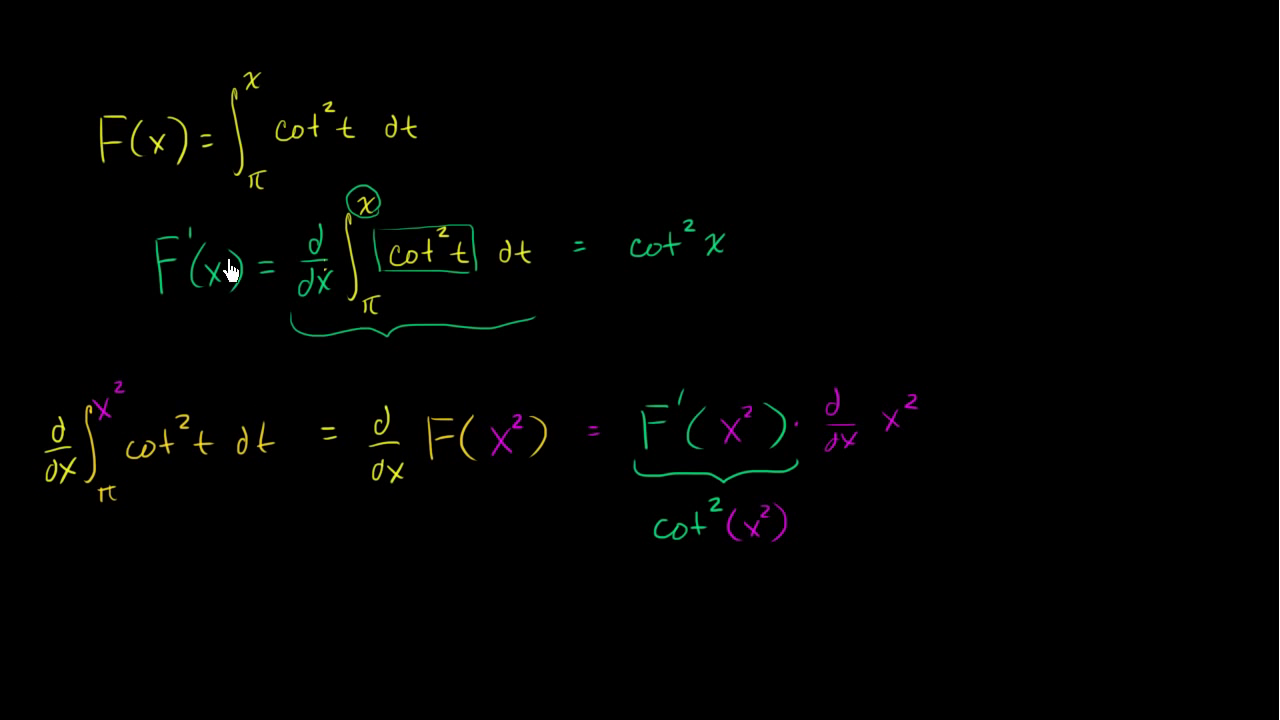 F(x) = ∫_π^x cot² t dt
F'(x) = d/dx ∫_π^x cot² t dt = cot² x
d/dx ∫_π^x² cot² t dt = d/dx F(x²) = F'(x²) · d/dx x²
cot²(x²)